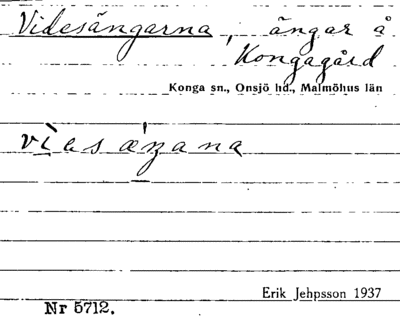 Videsängarna, ängar å
Kongagård
Konga sn., Onsjö hd., Malmöhus län
Erik Jehpsson 1937
Nr 5712.